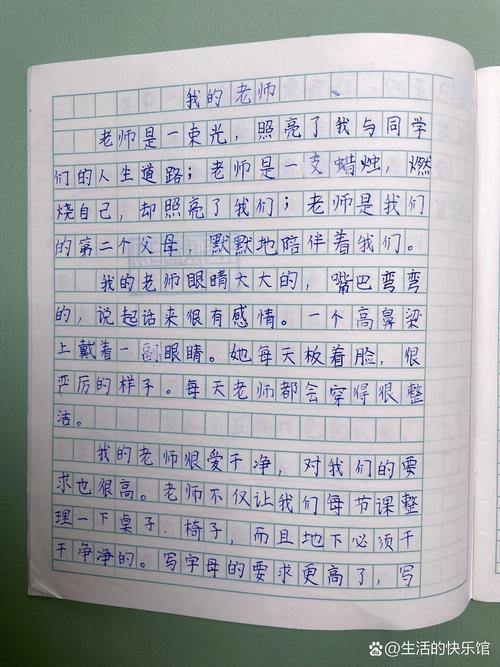 我的老师
老师是一束光，照亮了我与同学
们的人生道路；老师是一支蜡烛，燃
烧自己，却照亮了我们；老师是我们
的第二个父母，默默地陪伴着我们。
我的老师眼睛大大的，嘴巴弯弯
的，说起话来很有感情。一个高鼻梁
上戴着一副眼睛。她每天板着脸，很
严厉的样子。每天老师都会穿得很整
洁。
我的老师很爱干净，对我们的要
求也很高。老师不仅让我们每节课整
理一下桌子、椅子，而且地下必须干
干净净的。写字母的要求更高了，写
@生活的快乐馆